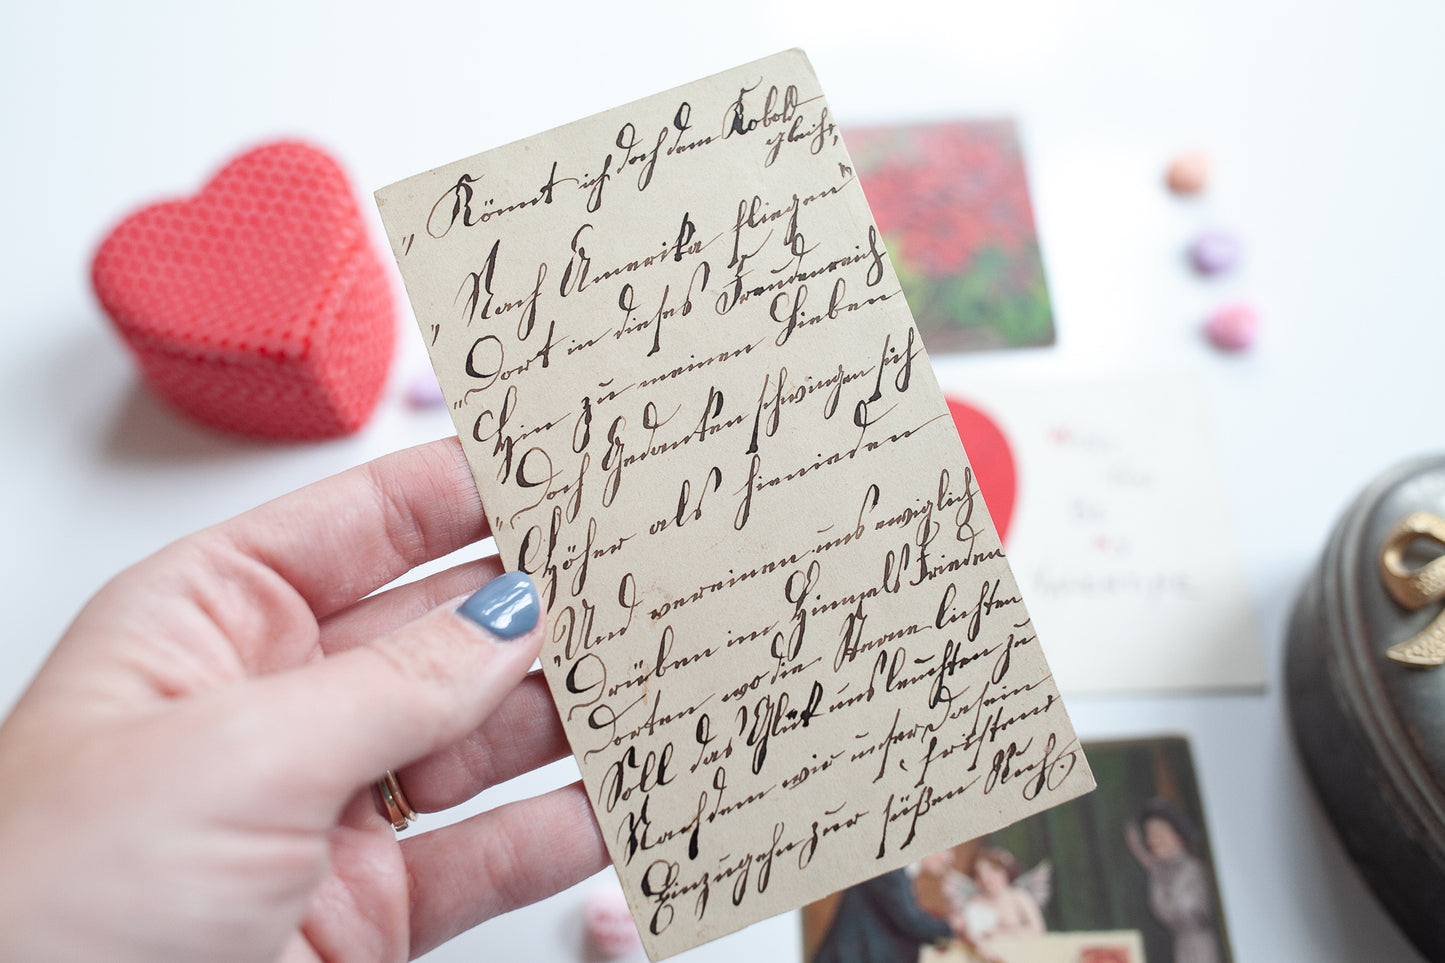 „Könnt ich doch dem Kobold
gleich,
„Nach Amerika fliegen"
Dort in dieses Freudenreich
„Hin zu meinen Lieben
Doch Gedanken schwingen sich
„Höher als hienieden
Und vereinen uns ewiglich
„Drüben im Himmels Frieden
Dorten wo die Sterne lichten
Soll das Glück uns leuchten zu
Nachdem wir unser Dasein
fristen,
Einzugehn zur süßen Ruh